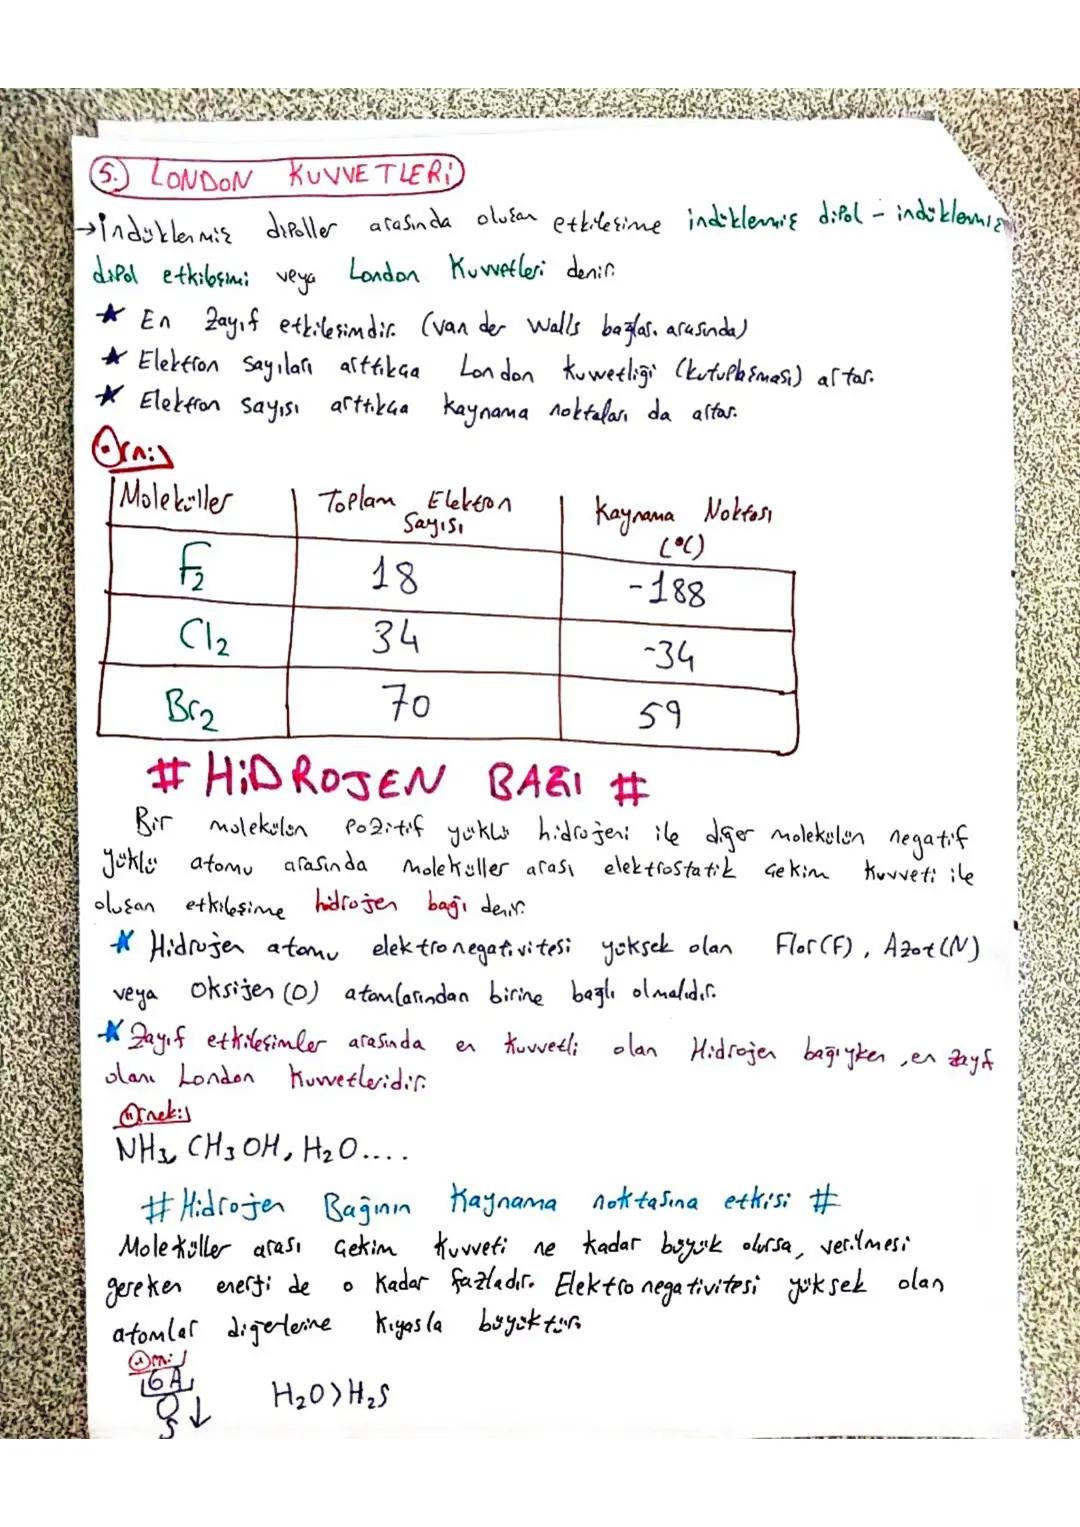 5. LONDON KUVVETLERİ
→İndüklenmiş dipoller arasında oluşan etkileşime indüklenmiş dipol - indüklenmiş
dipol etkileşimi veya London Kuvvetleri denir.
* En Zayıf etkileşimdir. (van der Walls bağlar. arasında)
* Elektron sayıları arttıkça London kuvvetliği (kutuplaşması) artar.
* Elektron sayısı arttıkça kaynama noktaları da artar.
Örn:
Moleküller Toplam Elektron Kaynama Noktası
Sayısı (°C)
F2 18 -188
Cl2 34 -34
Br2 70 59
# HİDROJEN BAĞI #
Bir molekülün pozitif yüklü hidrojeni ile diğer molekülün negatif
yüklü atomu arasında moleküller arası elektrostatik çekim kuvveti ile
oluşan etkileşime hidrojen bağı denir.
* Hidrojen atomu elektronegativitesi yüksek olan Flor(F), Azot(N)
veya Oksijen (O) atomlarından birine bağlı olmalıdır.
* Zayıf etkileşimler arasında en kuvvetli olan Hidrojen bağıyken, en zayıf
olanı London Kuvvetleridir.
Örnek:
NH3, CH3OH, H2O....
# Hidrojen Bağının Kaynama noktasına etkisi #
Moleküller arası çekim kuvveti ne kadar büyük olursa, verilmesi
gereken enerji de o kadar fazladır. Elektronegativitesi yüksek olan
atomlar diğerlerine kıyasla büyüktür.
Örn:
6A
O ↓ H2O>H2S
S